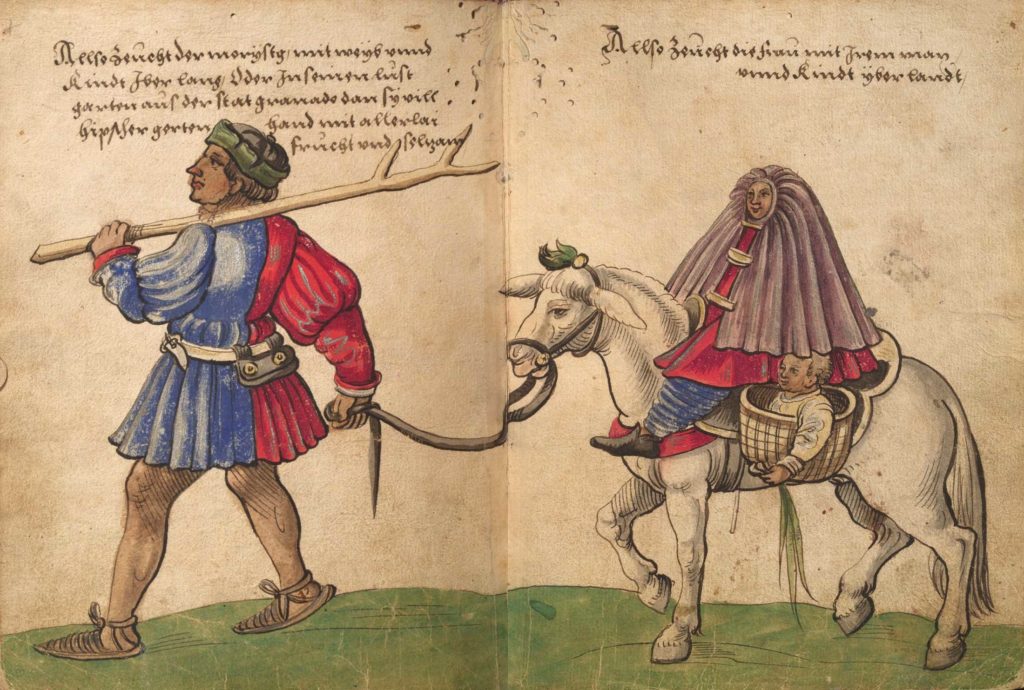 Allso Zeücht der morÿstg, mit weÿb vnnd
Kindt Iber lang, Oder In seinen lust
garten aus der stat granado dan sÿ vill
hipscher gerten hand mit allerlai
frücht vnd selzam
Allso Zeücht die frau mit Irem man
vnnd Kindt ÿber landt,